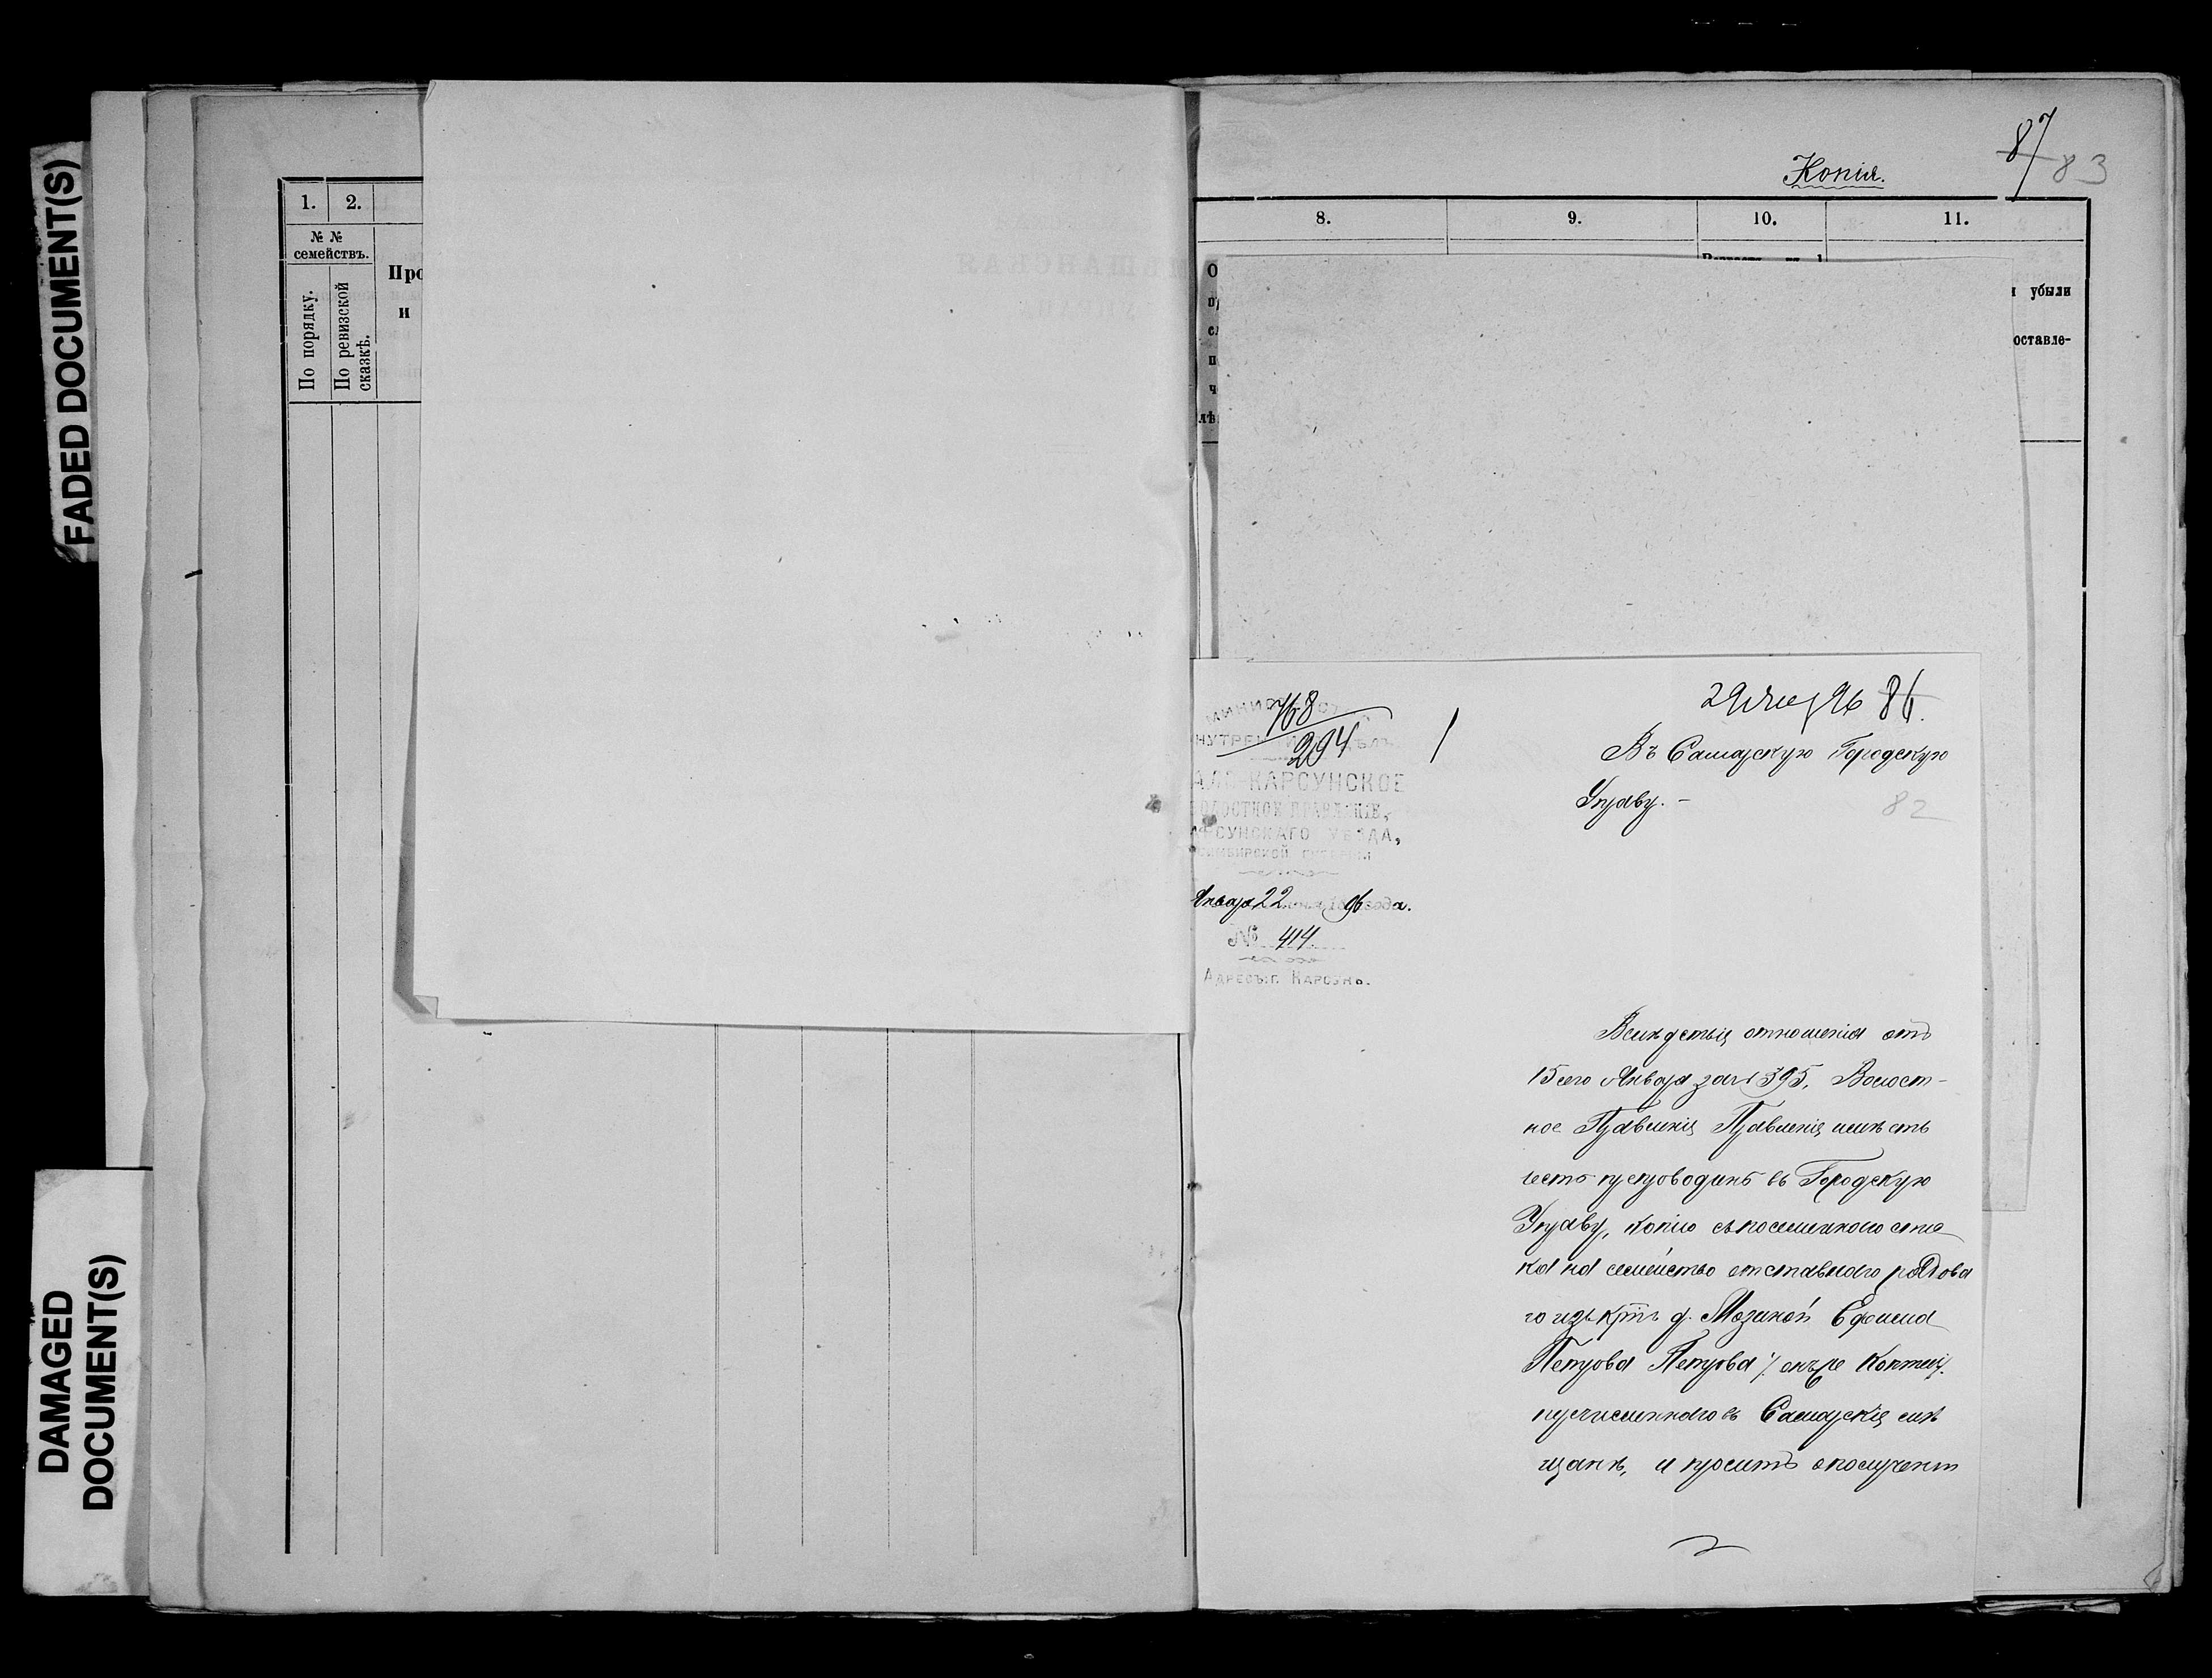 FADED DOCUMENT(S)
DAMAGED
DOCUMENT(S)
1. 2.
№ №
семействъ.
По порядку.
По ревизской
сказкѣ.
Про
и
87
83
Копія.
8. 9. 10. 11.
О
п
ч
лѣ
и убыли
оставле-
768
294
МИНИСТ
НУТРЕН ДѢЛЪ
КАРСУНСКОЕ
ОЛОСТНОЕ ПРАВЛЕНІЕ,
РСУНСКАГО УѢЗДА,
СИМБИРСКОЙ ГУБЕРНІИ
Января 22 дня 1896 года.
№ 414.
АДРЕСЪ: Г. КАРСУНЪ.
29 Янв 96 86.
Въ Самарскую Городскую
Управу. –
82
Вслѣдствіе отношенія отъ
15 сего Января за № 395, Волост-
ное Правленіе Правленіе имѣетъ
честь препроводить въ Городскую
Управу, копію съ посемейнаго спис
ка на семейство отставного рядова
го изъ кр. д. Ефима
Петрова Петрова
перечисленнаго въ Самарскіе мѣ
щане, и проситъ о полученіи